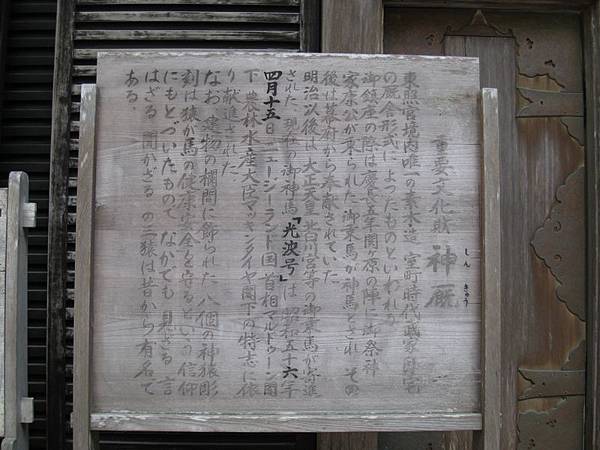 重要文化財 神厩
しん きゅう
東照宮境内唯一の素木造 室町時代武家邸宅
の厩舎形式によったものといわれる
御鎮座の際は慶長五年関ヶ原の陣に御祭神
家康公が乗られた御乗馬が神馬とされ その
後は幕府から奉献されていた
明治以後は 大正天皇 北白川宮等の御乗馬が寄進
された 現在の御神馬「光波号」は 昭和五十六年
四月十五日 ニュージーランド国首相マルドゥーン閣
下 農林水産大臣マッキンタイヤ閣下の特志に依
り献進された
なお 建物の欄間に飾られた 八個の神猿彫
刻は 猿が馬の健康安全を守るという信仰
にもとづいたもので なかでも 見ざる 言
はざる 聞かざる の三猿は昔から有名で
ある。